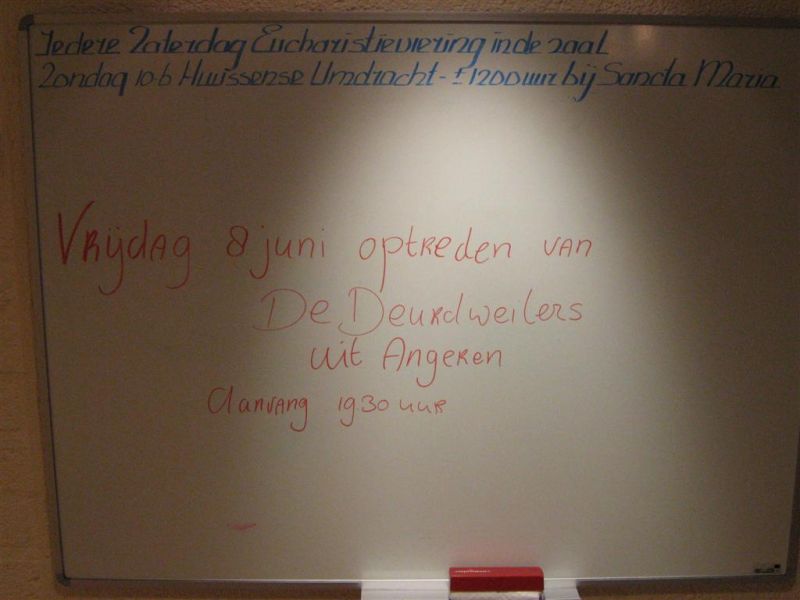 Iedere Zaterdag Eucharistieviering in de zaal
Zondag 10-6 Huissense Umdracht - ± 1200 uur bij Sancta Maria
Vrijdag 8 juni optreden van
De Deurdweilers
uit Angeren
Aanvang 19.30 uur